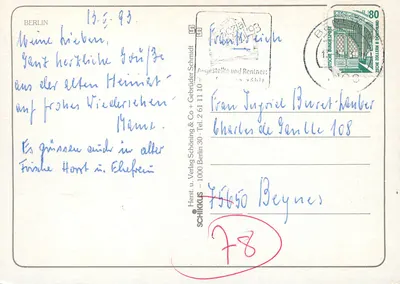 BERLIN
13.5.93.
Meine Lieben,
Ganz herzliche Grüße
aus der alten Heimat-
auf frohes Wiedersehen-
Mama.
Es grüssen auch in alter
Frische Horst u. Ehefrau
SCHIKKUS
Herst. u. Verlag Schöning & Co + Gebrüder Schmidt
- 1000 Berlin 30 - Tel. 2 61 11 10
Angestellte und Rentner
80
Frankreich
Frau Ingrid Buret-Lauber
Charles de Gaulle 108
75650 Beynes
78